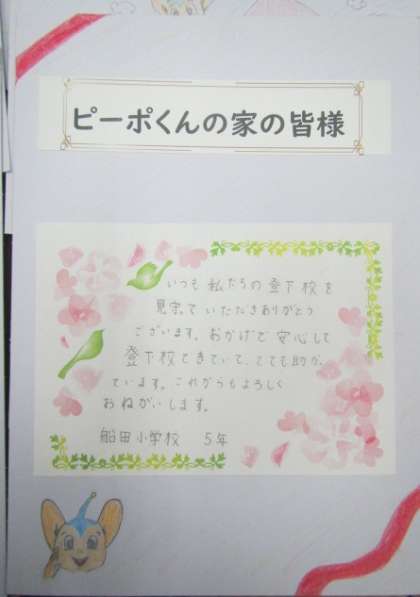 ピーポくんの家の皆様
いつも私たちの登下校を
見守っていただきありがとう
ございます。おかげで安心して
登下校できていて、とても助か
ています。これからもよろしく
おねがいします。
船田小学校 5年